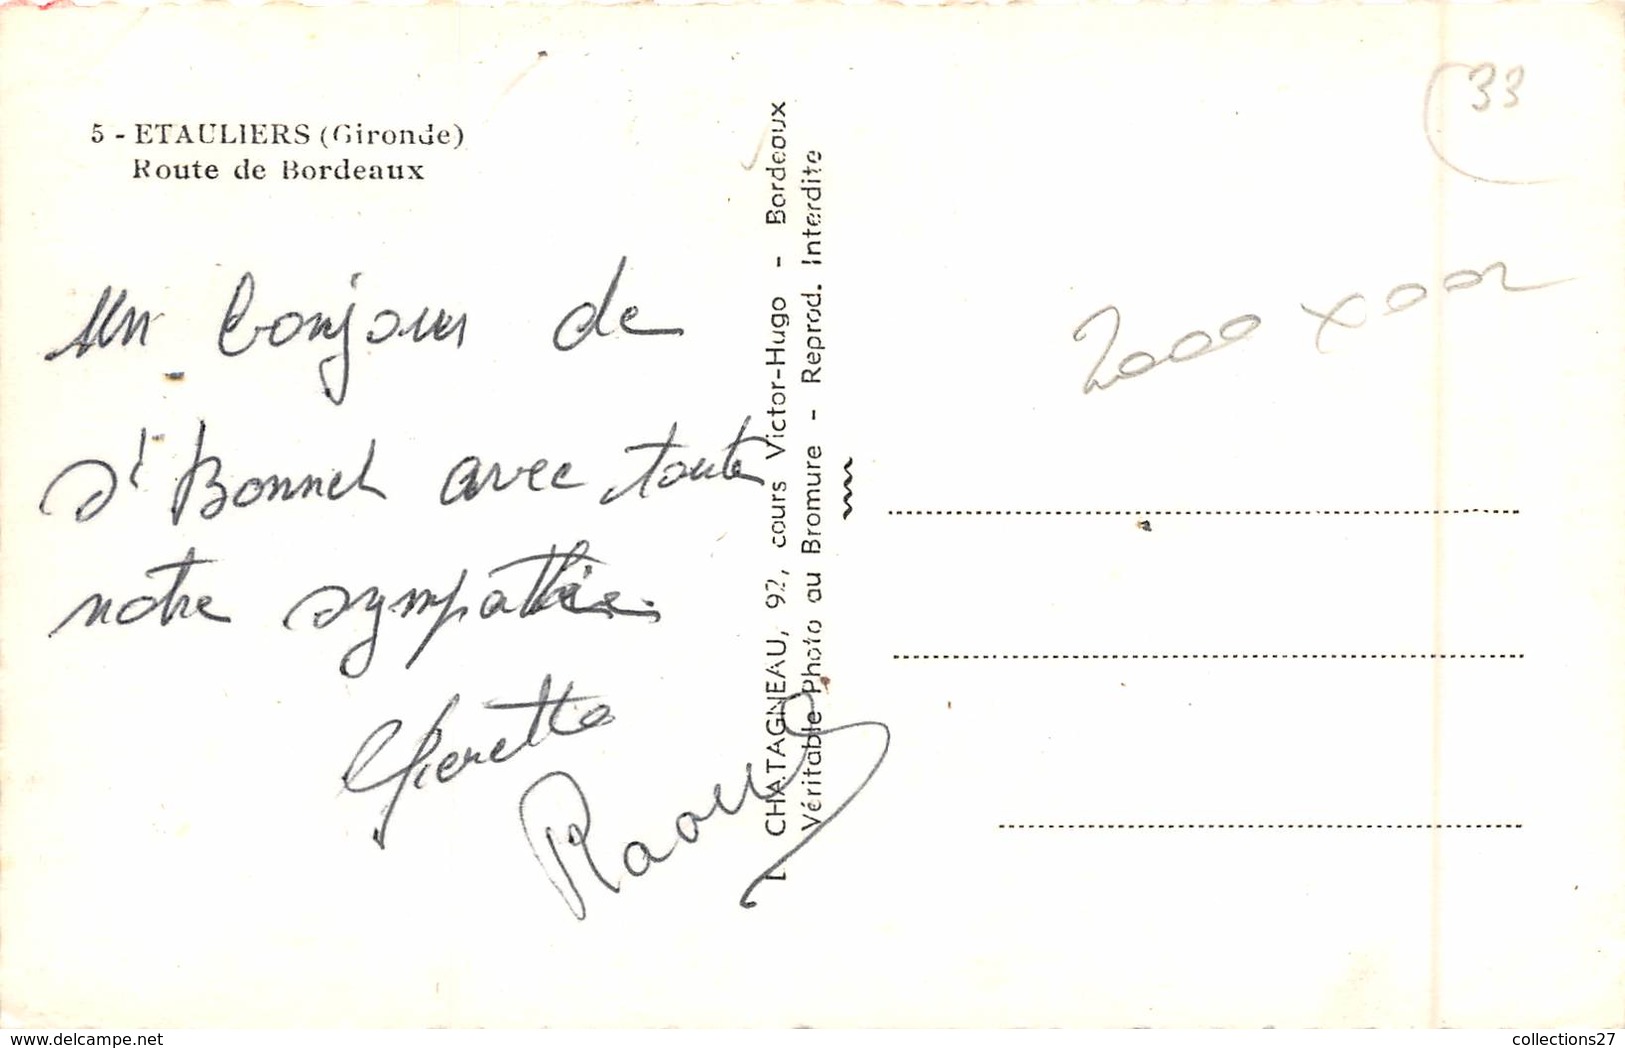 5 - ETAULIERS (Gironde)
Route de Bordeaux
Un bonjour de
St Bonnet avec toute
notre sympathie.
Pierrette
Raoul
CHATAGNEAU, 92, cours Victor-Hugo - Bordeaux
Véritable Photo au Bromure - Reprod. Interdite
33
www.delcampe.net
collections27